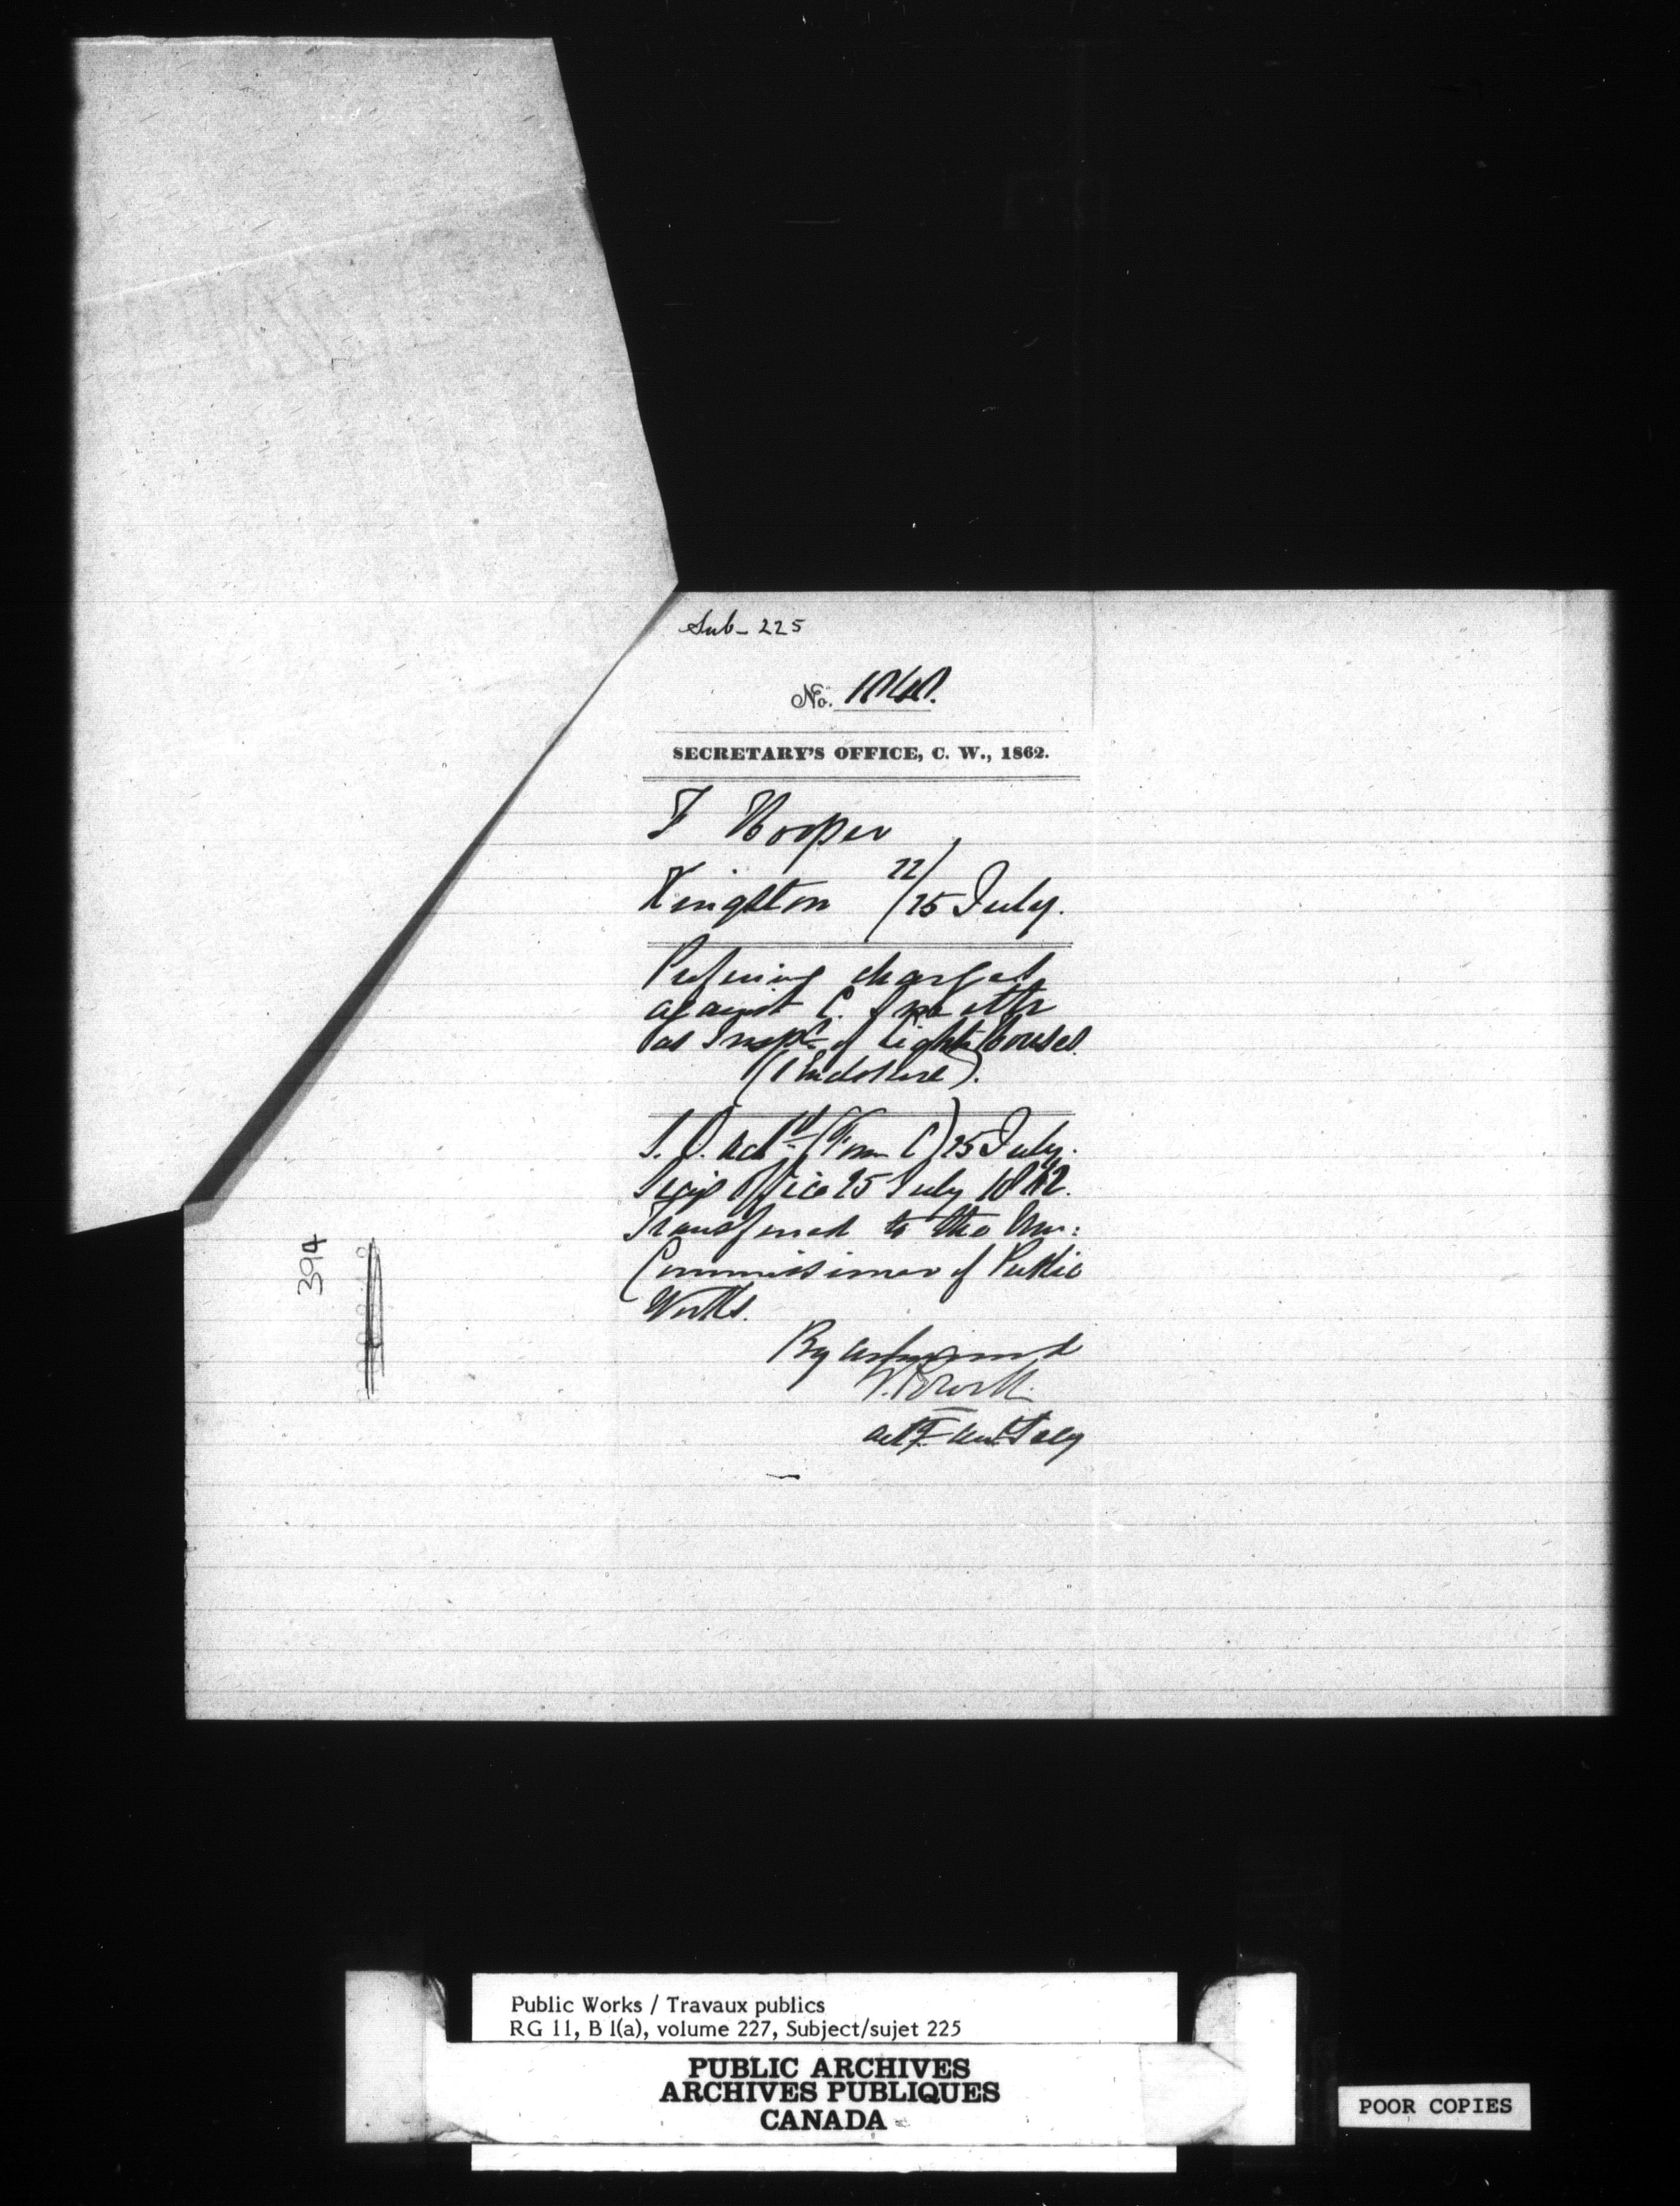 Sub- 225
No. 1848.
SECRETARY'S OFFICE, C. W., 1862.
F Hooper
Kingston 22/25 July.
Prefering charges
against C. Smith
as Inspr. of Light houses.
(1 Enclosure).
25 July.
Office 25 July 1862.
Transferred to the Hon:
Commissioner of Public
Works.
By command
394
Public Works / Travaux publics
RG 11, B 1(a), volume 227, Subject/sujet 225
PUBLIC ARCHIVES
ARCHIVES PUBLIQUES
CANADA
POOR COPIES